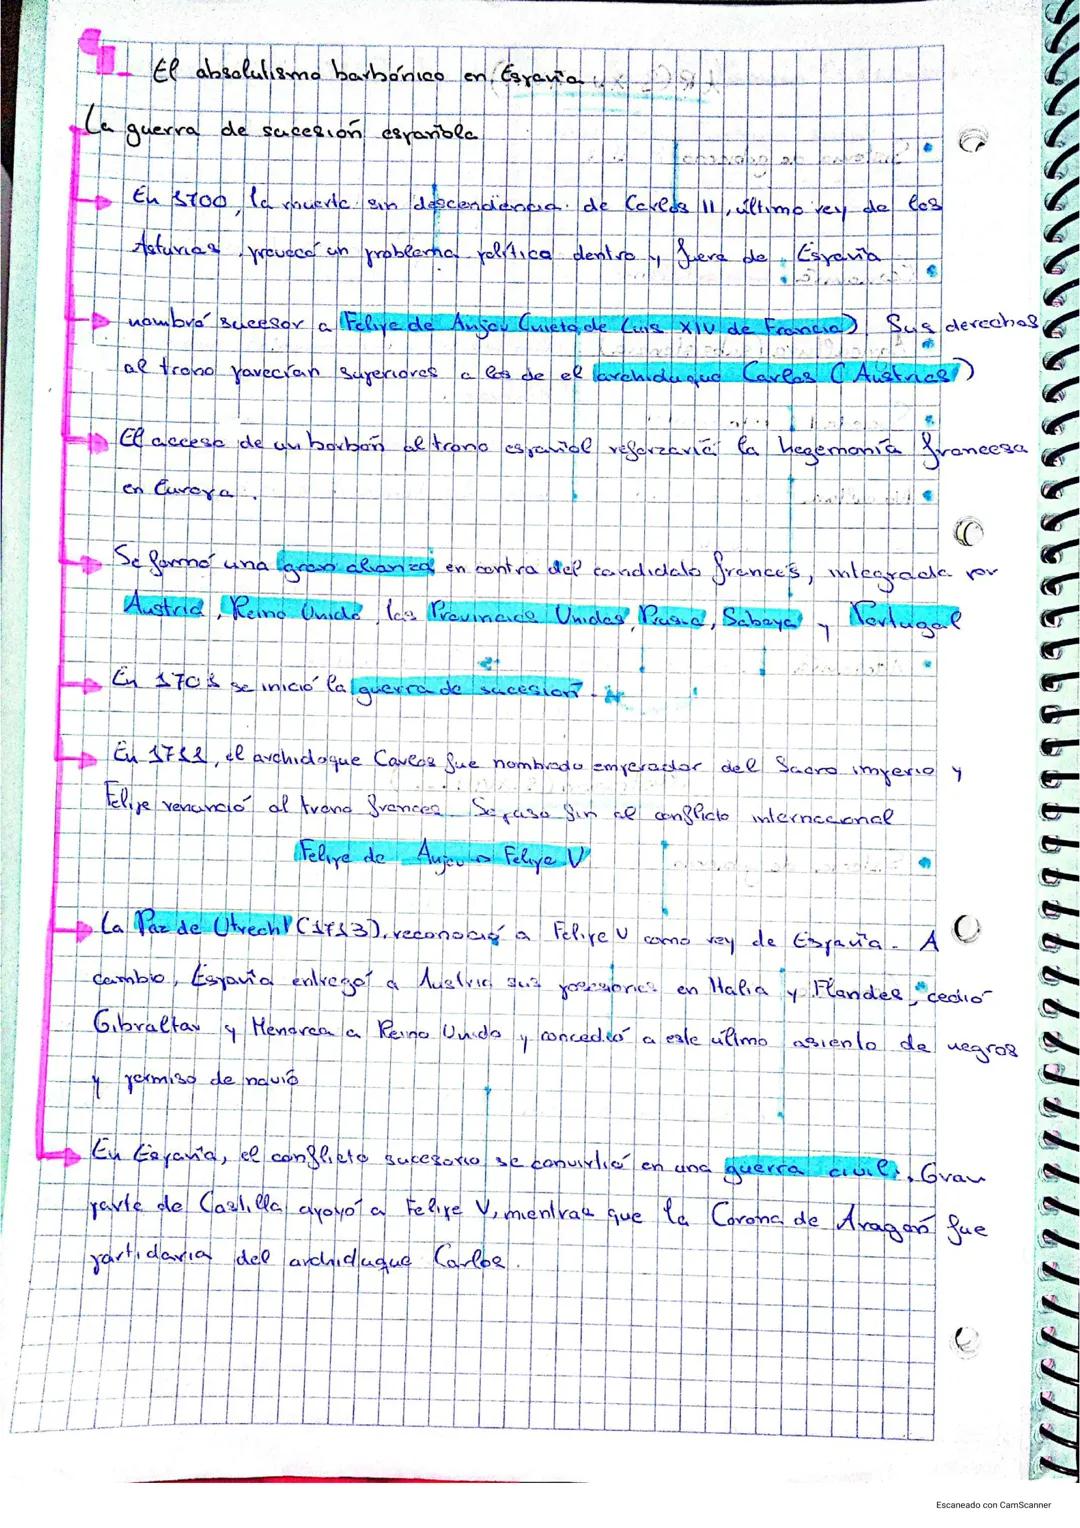 El absolutismo borbónico en España
La guerra de sucesión española
En 1700, la muerte sin descendencia de Carlos II, último rey de los
Asturias, provocó un problema político dentro y fuera de España
nombró sucesor a Felipe de Anjou (nieto de Luis XIV de Francia) Sus derechos
al trono parecían superiores a los de el archiduque Carlos (Austrias)
El acceso de un borbón al trono español reforzaría la hegemonía francesa
en Europa.
Se formó una gran alianza en contra del candidato francés, integrada por
Austria, Reino Unido, las Provincias Unidas, Prusia, Saboya y Portugal
En 1701 se inició la guerra de sucesión.
En 1711, el archidoque Carlos fue nombrado emperador del Sacro imperio y
Felipe renunció al trono frances. Se puso fin al conflicto internacional
Felipe de Anjou → Felipe V
La Paz de Utrecht (1713), reconoció a Felipe V como rey de España. A
cambio, España entregó a Austria sus posesiones en Italia y Flandes, cedió
Gibraltar y Menorca a Reino Unido y concedió a este último asiento de negros
y permiso de navió
En España, el conflicto sucesorio se convirtió en una guerra civil. Gran
parte de Castilla apoyó a Felipe V, mientras que la Corona de Aragón fue
partidaria del archiduque Carlos.
Escaneado con CamScanner